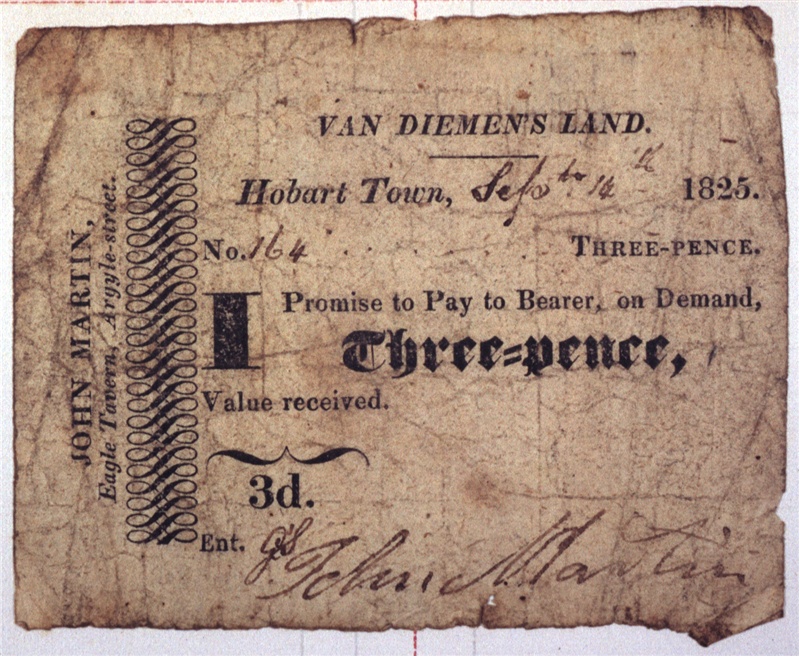 JOHN MARTIN,
Eagle Tavern, Argyle-street.
VAN DIEMEN'S LAND.
Hobart Town, Sepbr 14th 1825.
No. 164 THREE-PENCE.
I Promise to Pay to Bearer, on Demand,
Three-pence,
Value received.
3d.
Ent.
John Martin